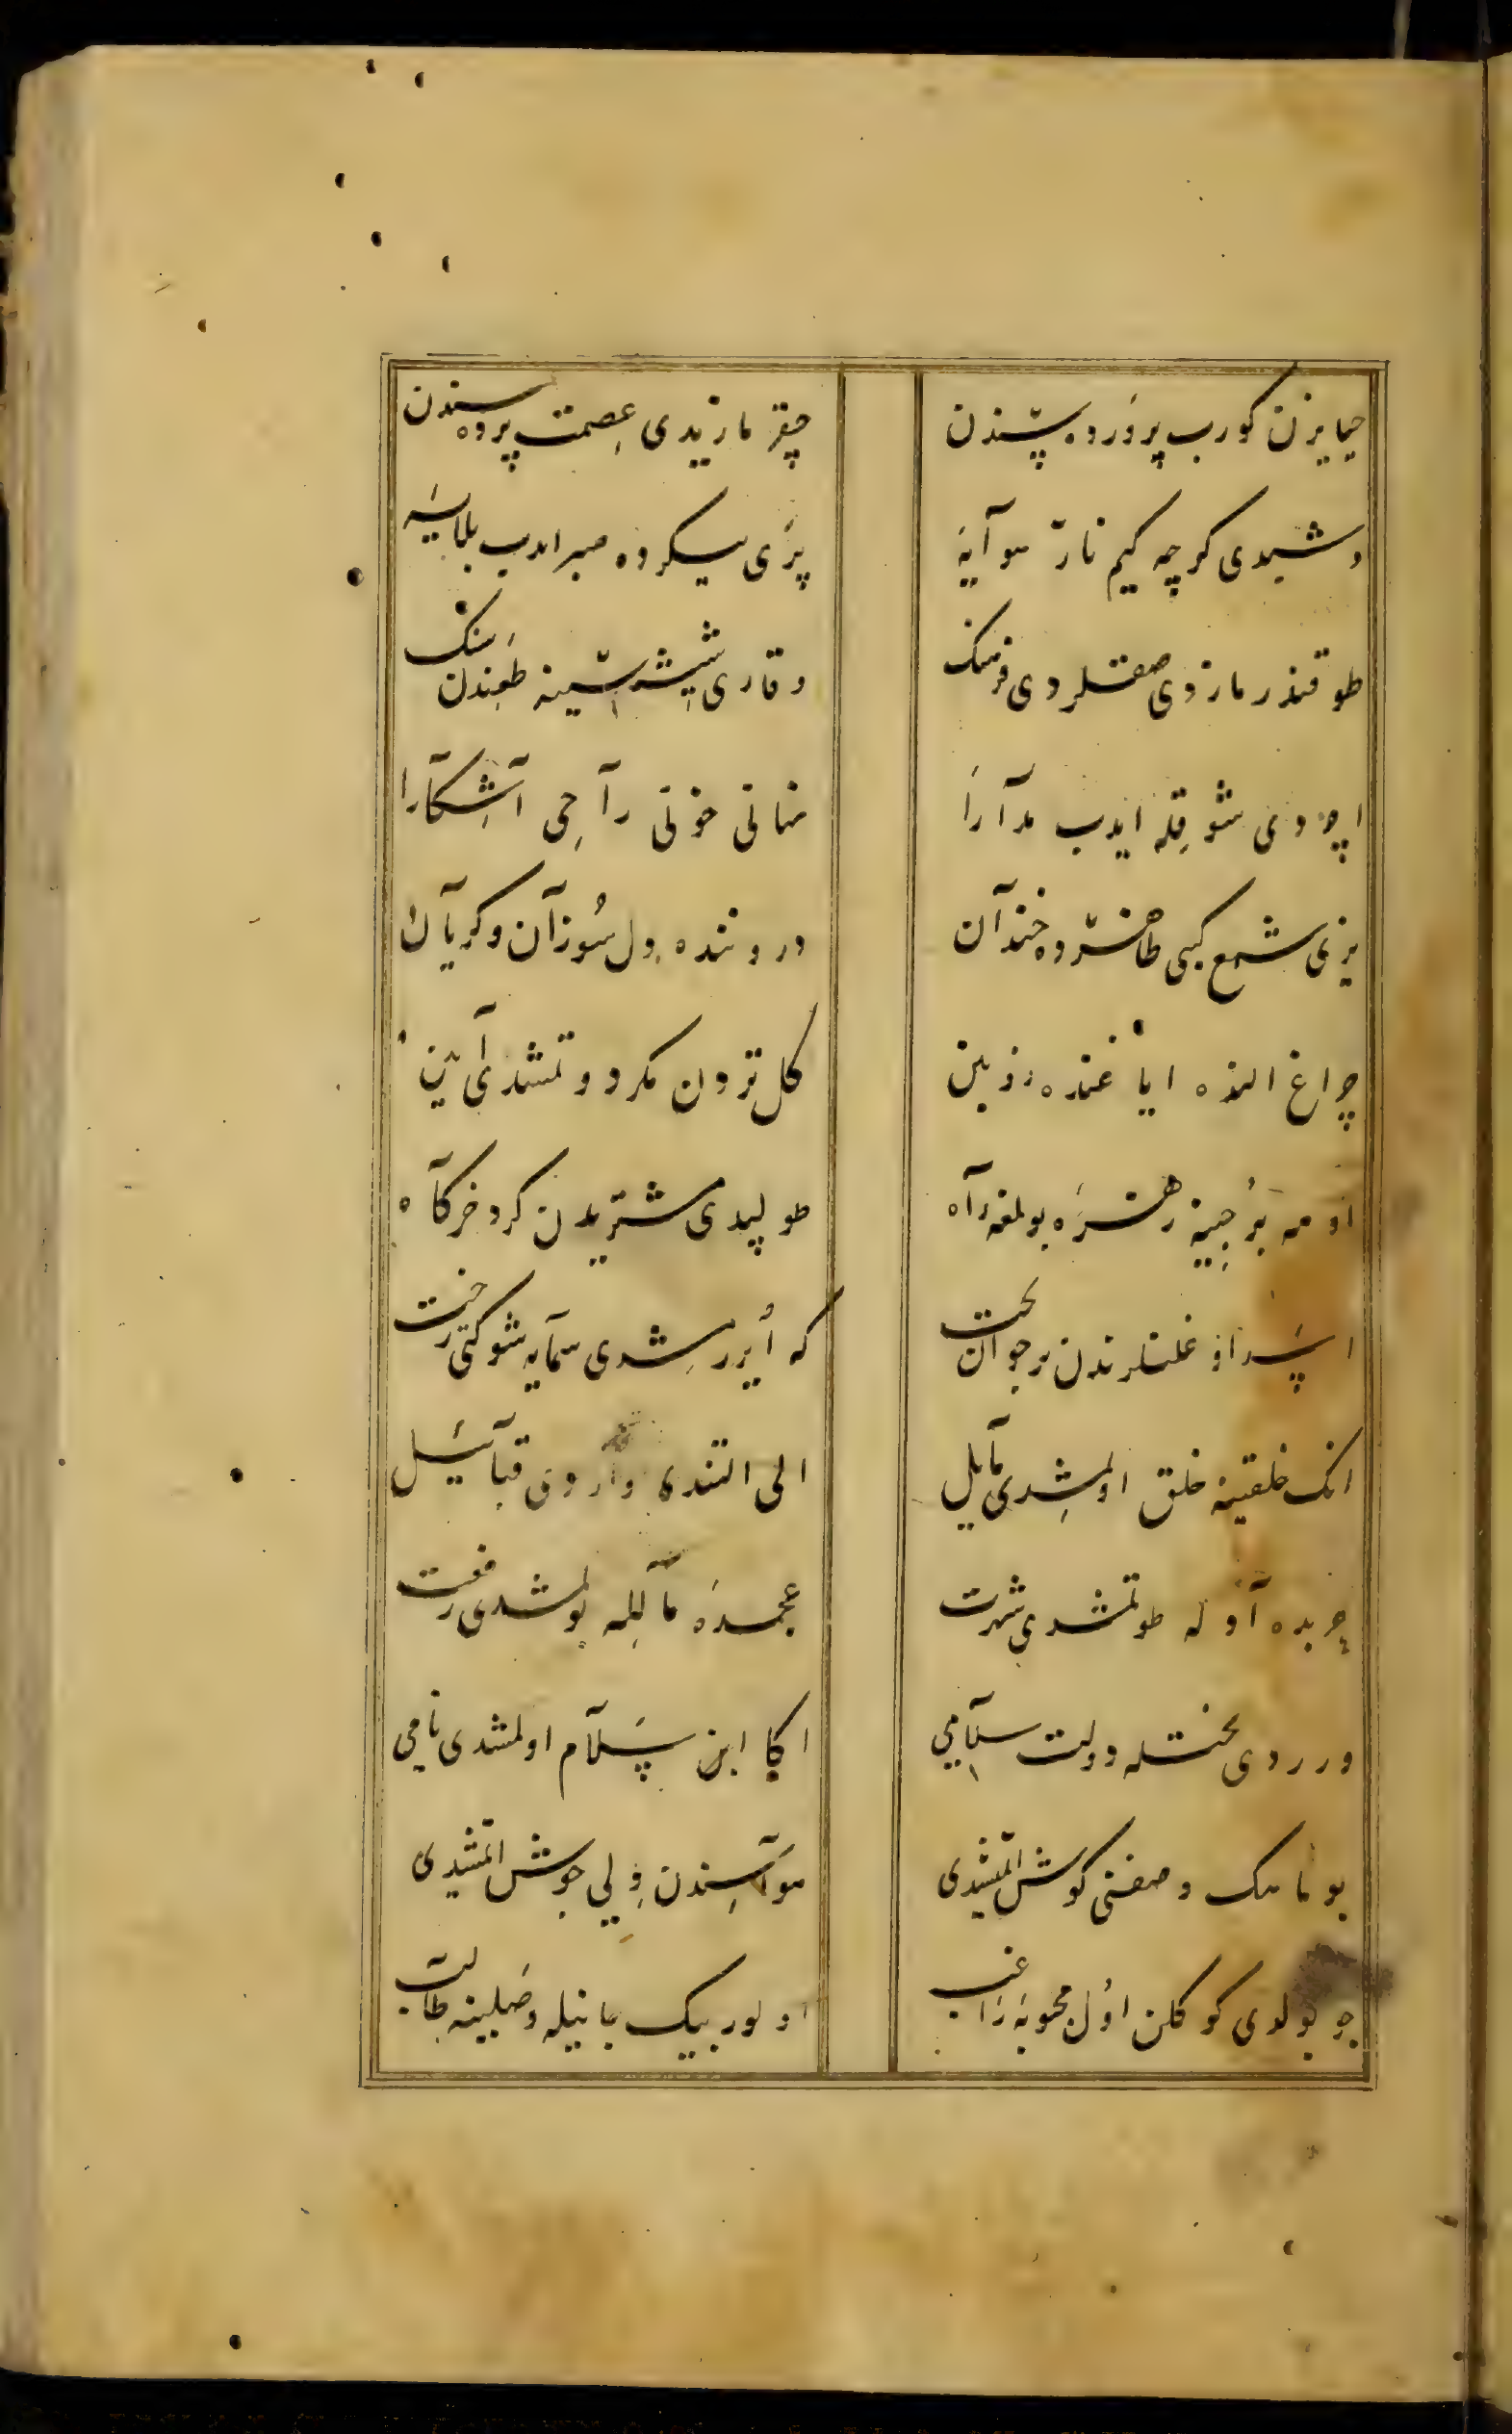 حیا یزن کورب پرورده سندن چقرمازیدی عصمت پرده سندن
دشیدی کرچه کیم نار هوایه پری یسکرده صبر ادب بلایه
طوقندرمازدی صقلردی فرهنک وقاری شیشه سینه طعندن سنک
اچردی شوقله ایدب مدارا نهانی خونی راحی آشکارا
یزی شمع کبی طاشره خندان درونده دل سوزان وکریان
چراغ النده ایاغنده زرین کل تردن مکر دوتمشدی آیین
او مه برجینه زهره بولمغه راه طولیدی مشتریدن کرد خرکاه
اسد اوغلنلرندن بر جوان بخت که ایررمشدی سمایه شوکتی رخت
انک خلقینه خلق اولمشدی مایل الی التنده واردی قبایل
عربده آد له طوتمشدی شهرت عجمده مالله بولمشدی رفعت
ویرردی بختله دولت سلامی اکا ابن سلام اولمشدی نامی
بو ماهک وصفنی کوش اتمشیدی هواسندن ولی جوش اتمشیدی
چو بولدی کوکلن اول محبوبه راغب اولور بیک جانیله وصلینه طالب